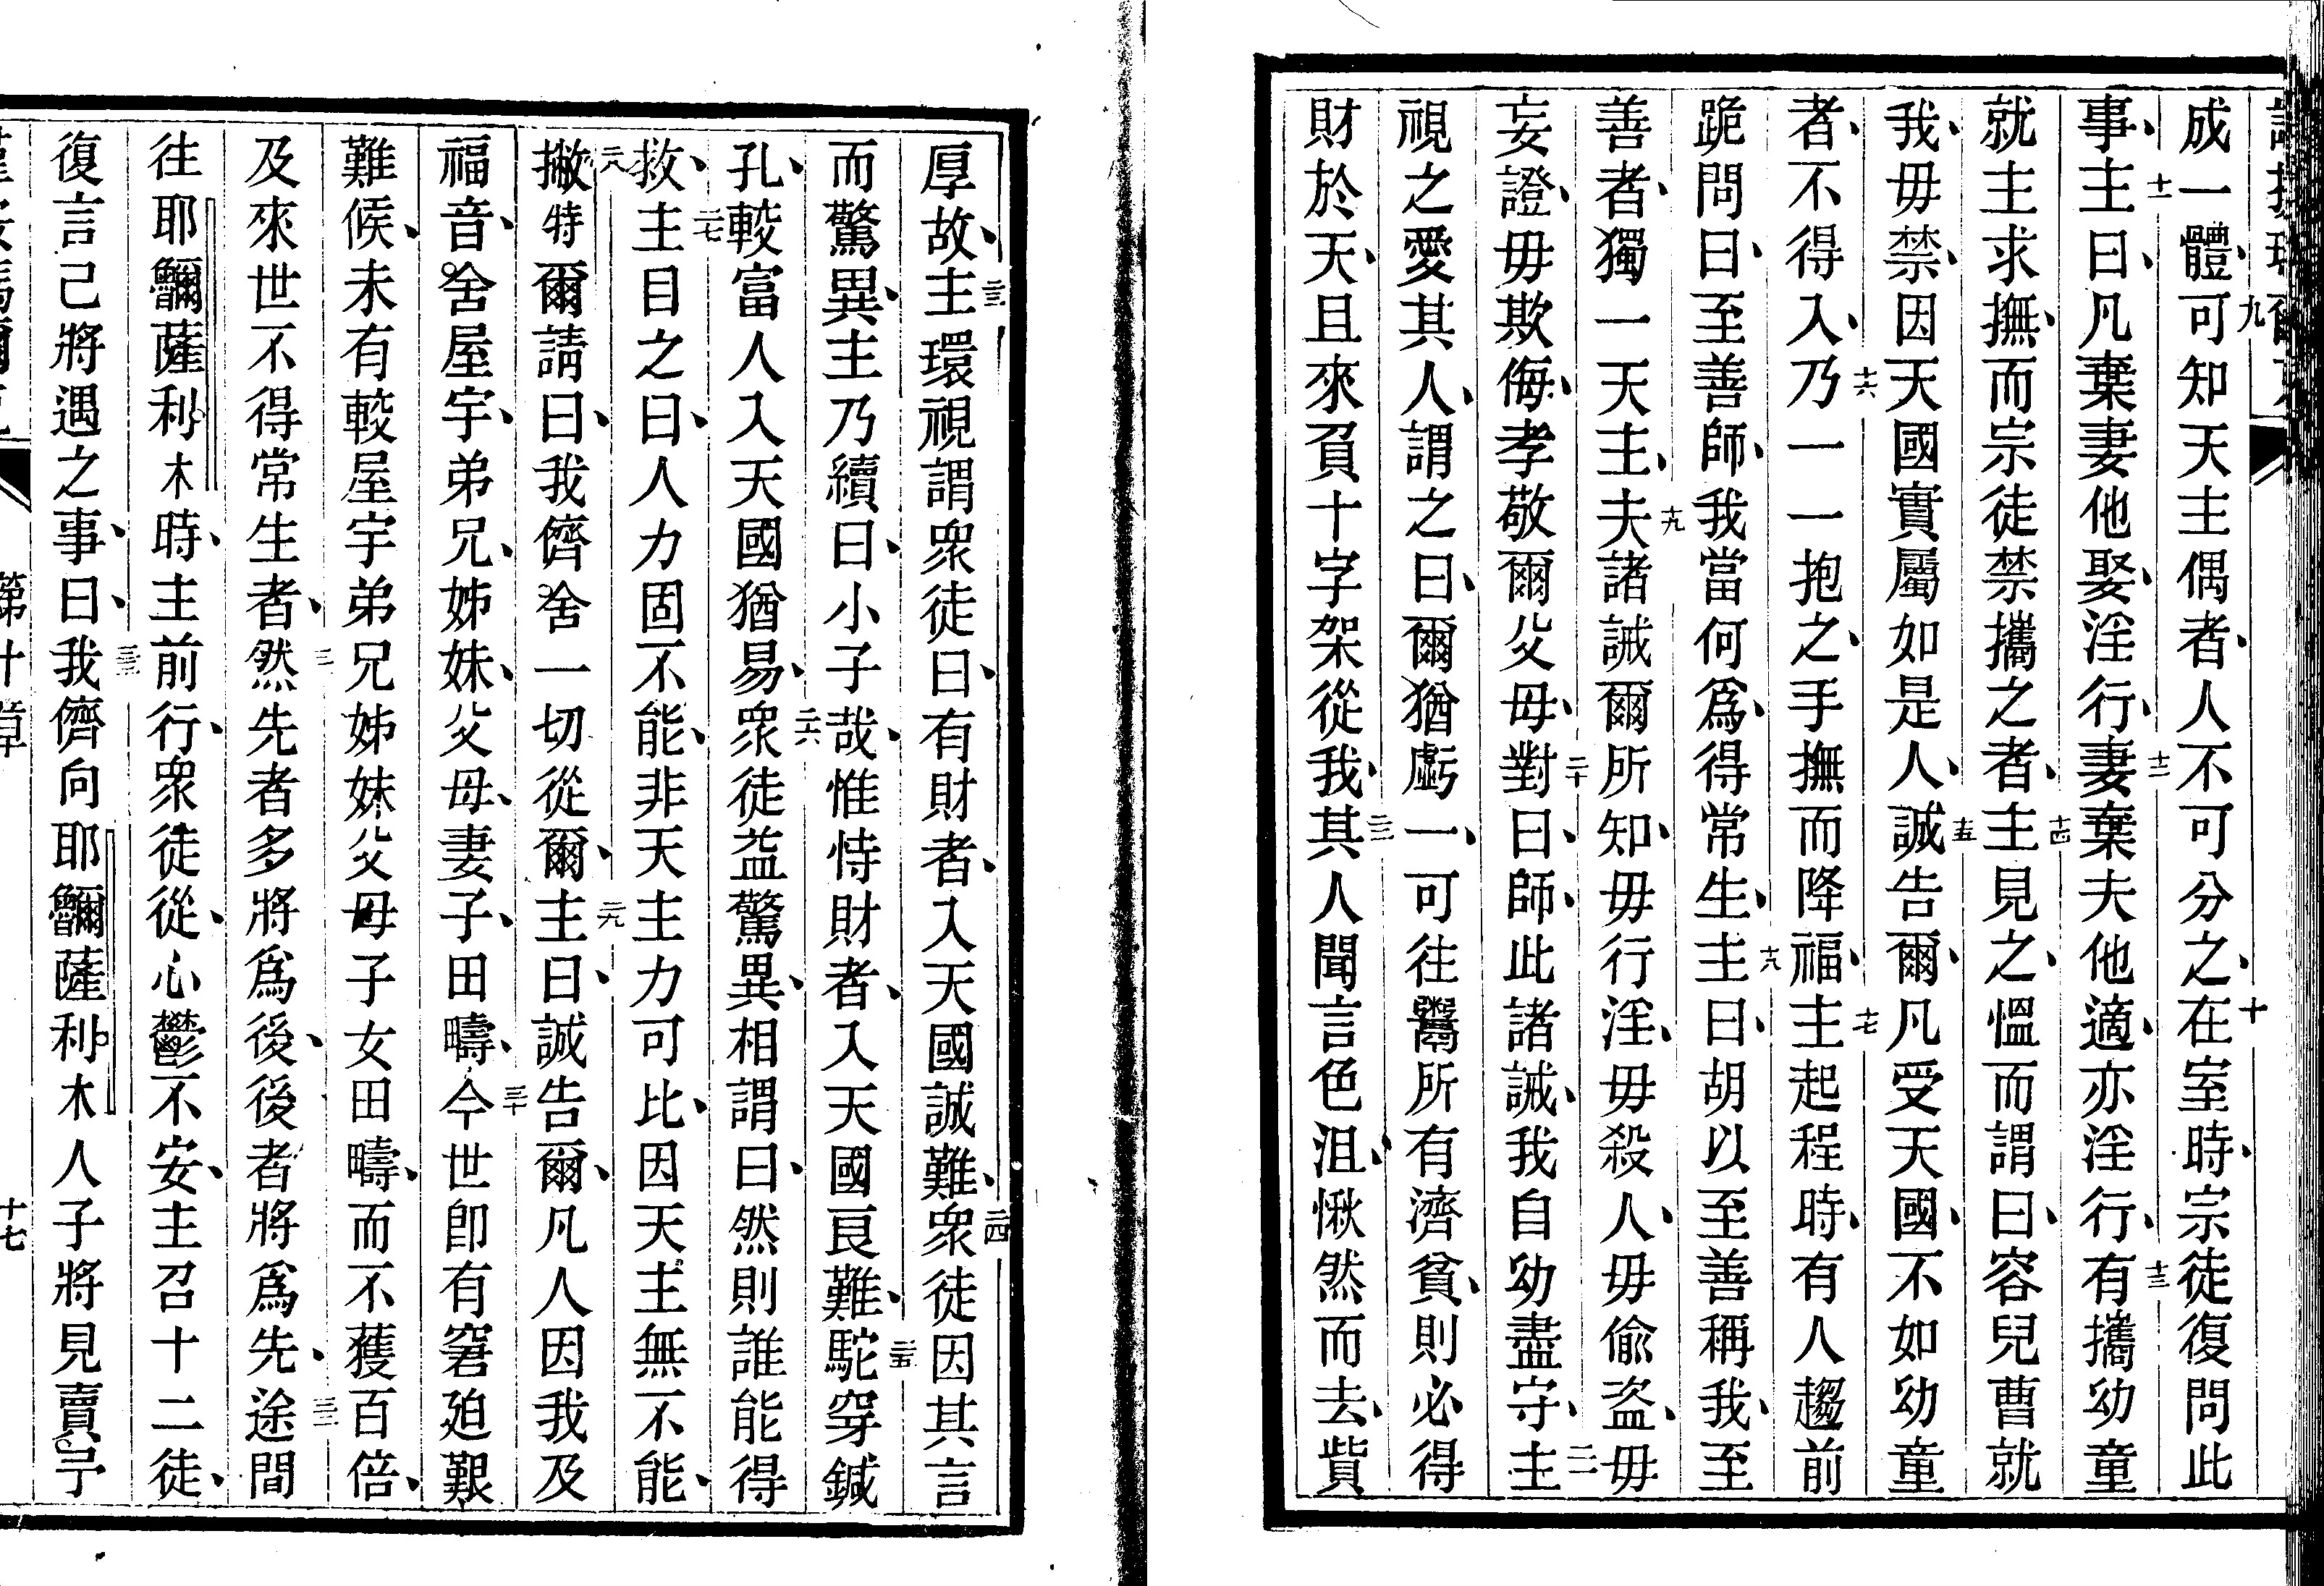 成一體、九可知天主偶者、人不可分之、十在室時、宗徒復問此
事、十一主曰、凡棄妻他娶、淫行、十二妻棄夫他適、亦淫行、十三有攜幼童
就主求撫、而宗徒禁攜之者、十四主見之、慍而謂曰、容兒曹就
我、毋禁、因天國實屬如是人、十五誠告爾、凡受天國、不如幼童
者、不得入、十六乃一一抱之、手撫而降福、十七主起程時、有人趨前
跪問曰、至善師、我當何爲、得常生、十八主曰、胡以至善稱我、至
善者、獨一天主、十九夫諸誡爾所知、毋行淫、毋殺人、毋偸盗、毋
妄證、毋欺侮、孝敬爾父母、二十對曰、師、此諸誡、我自幼盡守、二一主
視之愛其人、謂之曰、爾猶虧一、可往鬻所有濟貧、則必得
財於天、且來負十字架從我、二二其人聞言色沮、愀然而去、貲
厚故、二三主環視謂衆徒曰、有財者、入天國誠難、二四衆徒因其言
而驚異、主乃續曰、小子哉、惟恃財者、入天國良難、二五駝穿鍼
孔、較富人入天國猶易、二六衆徒益驚異、相謂曰、然則誰能得
救、二七主目之曰、人力固不能、非天主力可比、因天主無不能、
二八撇特爾請曰、我儕舍一切從爾、二九主曰、誠告爾、凡人因我及
福音、舍屋宇、弟兄、姊妹、父母、妻子、田疇、三十今世卽有窘廹艱
難候、未有較屋宇弟兄姊妹父母子女田疇、而不獲百倍、
及來世不得常生者、三一然先者多將爲後、後者將爲先、三二途間
往耶𩆢薩利木時、主前行、衆徒從、心鬱不安、主召十二徒、
復言己將遇之事、曰、三三我儕向耶𩆢薩利木人子將見賣予
第十章
十七